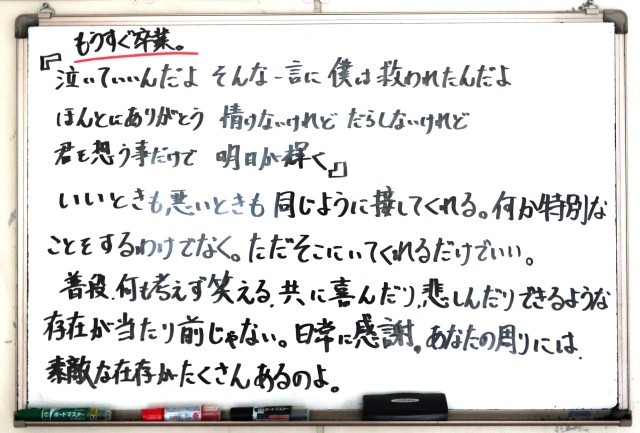 もうすぐ卒業。
『泣いていいんだよ そんな一言に 僕は救われたんだよ
ほんとにありがとう 情けないけれど だらしないけれど
君を想う事だけで 明日が輝く』
いいときも、悪いときも 同じように接してくれる。何か特別な
ことをするわけでなく。ただそこにいてくれるだけでいい。
普段、何も考えず笑える、共に喜んだり、悲しんだりできるような
存在が当たり前じゃない。日常に感謝。あなたの周りには
素敵な存在がたくさんあるのよ。
ボードマスター
ボードマスター